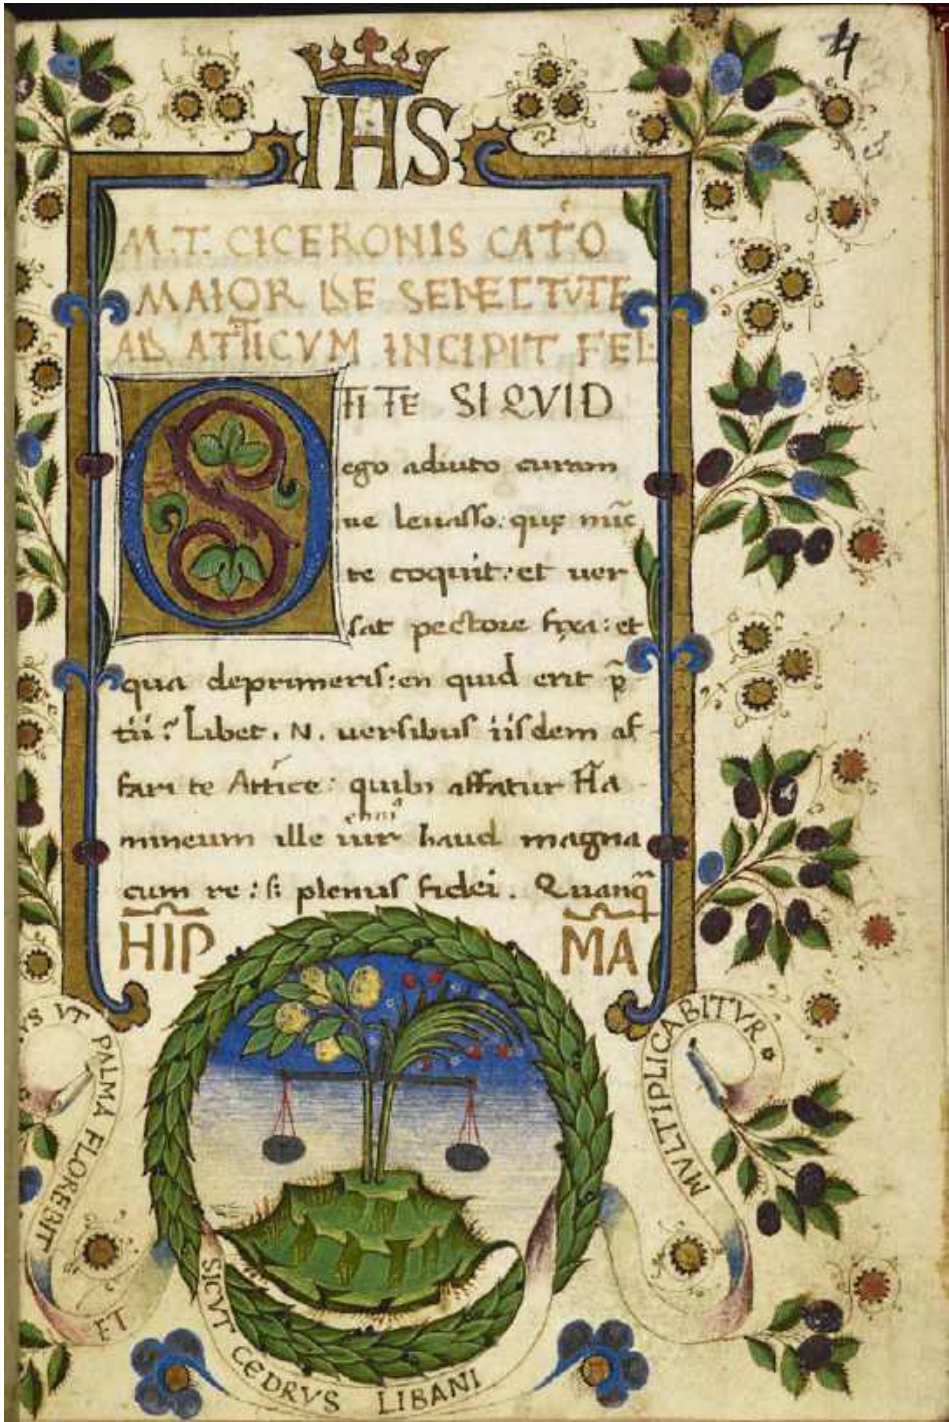 4
IHS
M.T. CICERONIS CATO
MAIOR DE SENECTVTE
AD ATTICVM INCIPIT FEL
O TI TE SI QVID
ego adiuto curam
ue leuasso. quę nũc
te coquit: et uer
sat pectore fixa: et
qua deprimeris: en quid erit p̃
tii? Libet. N. uersibus iisdem af
fari te Attice: quibꝫ affatur Fla
mineum ille uir haud magna
cum re: s; plenus fidei. Quanq̃
HIP MA
VS VT PALMA FLOREBIT ET
SICVT CEDRVS LIBANI
MVLTIPLICABITVR